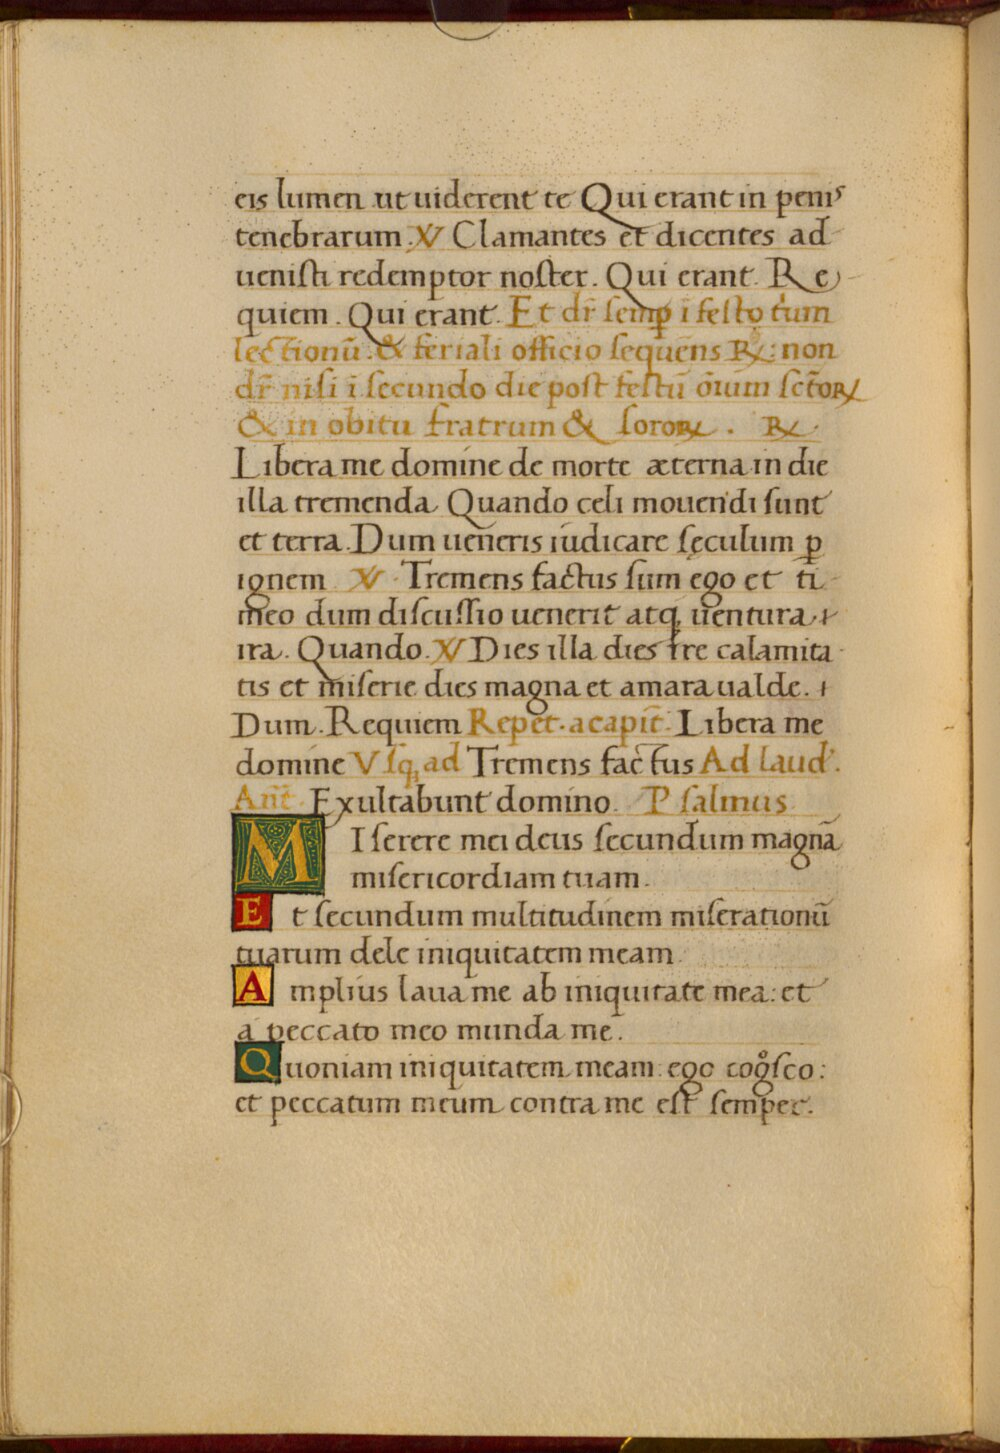 eis lumen ut uiderent te Qui erant in penis
tenebrarum. ℣ Clamantes et dicentes ad
uenisti redemptor noster. Qui erant. Re
quiem. Qui erant. Et dr̄ semꝑ ī festo triū
lectionū. & feriali officio sequens ℟: non
dr̄ nisi ī secundo die post festū oīum sctōꝝ
& in obitu fratrum & soroꝝ. ℟.
Libera me domine de morte æterna in die
illa tremenda Quando celi mouendi sunt
et terra. Dum ueneris iudicare sęculum ꝑ
ignem ℣ Tremens factus sum ego et ti
meo dum discussio uenerit atq; uentura
ira. Quando. ℣ Dies illa dies ire calamita
tis et miserie dies magna et amara ualde.
Dum. Requiem Repet. a capit̄. Libera me
domine Vsq; ad Tremens factus Ad laud'.
Ant̄. Exultabunt domino. Psalmus
MIserere mei deus secundum magnā
misericordiam tuam.
Et secundum multitudinem miserationū
tuarum dele iniquitatem meam.
Amplius laua me ab iniquitate mea: et
a peccato meo munda me.
Quoniam iniquitatem meam ego cogͦsco:
et peccatum meum contra me est semper.